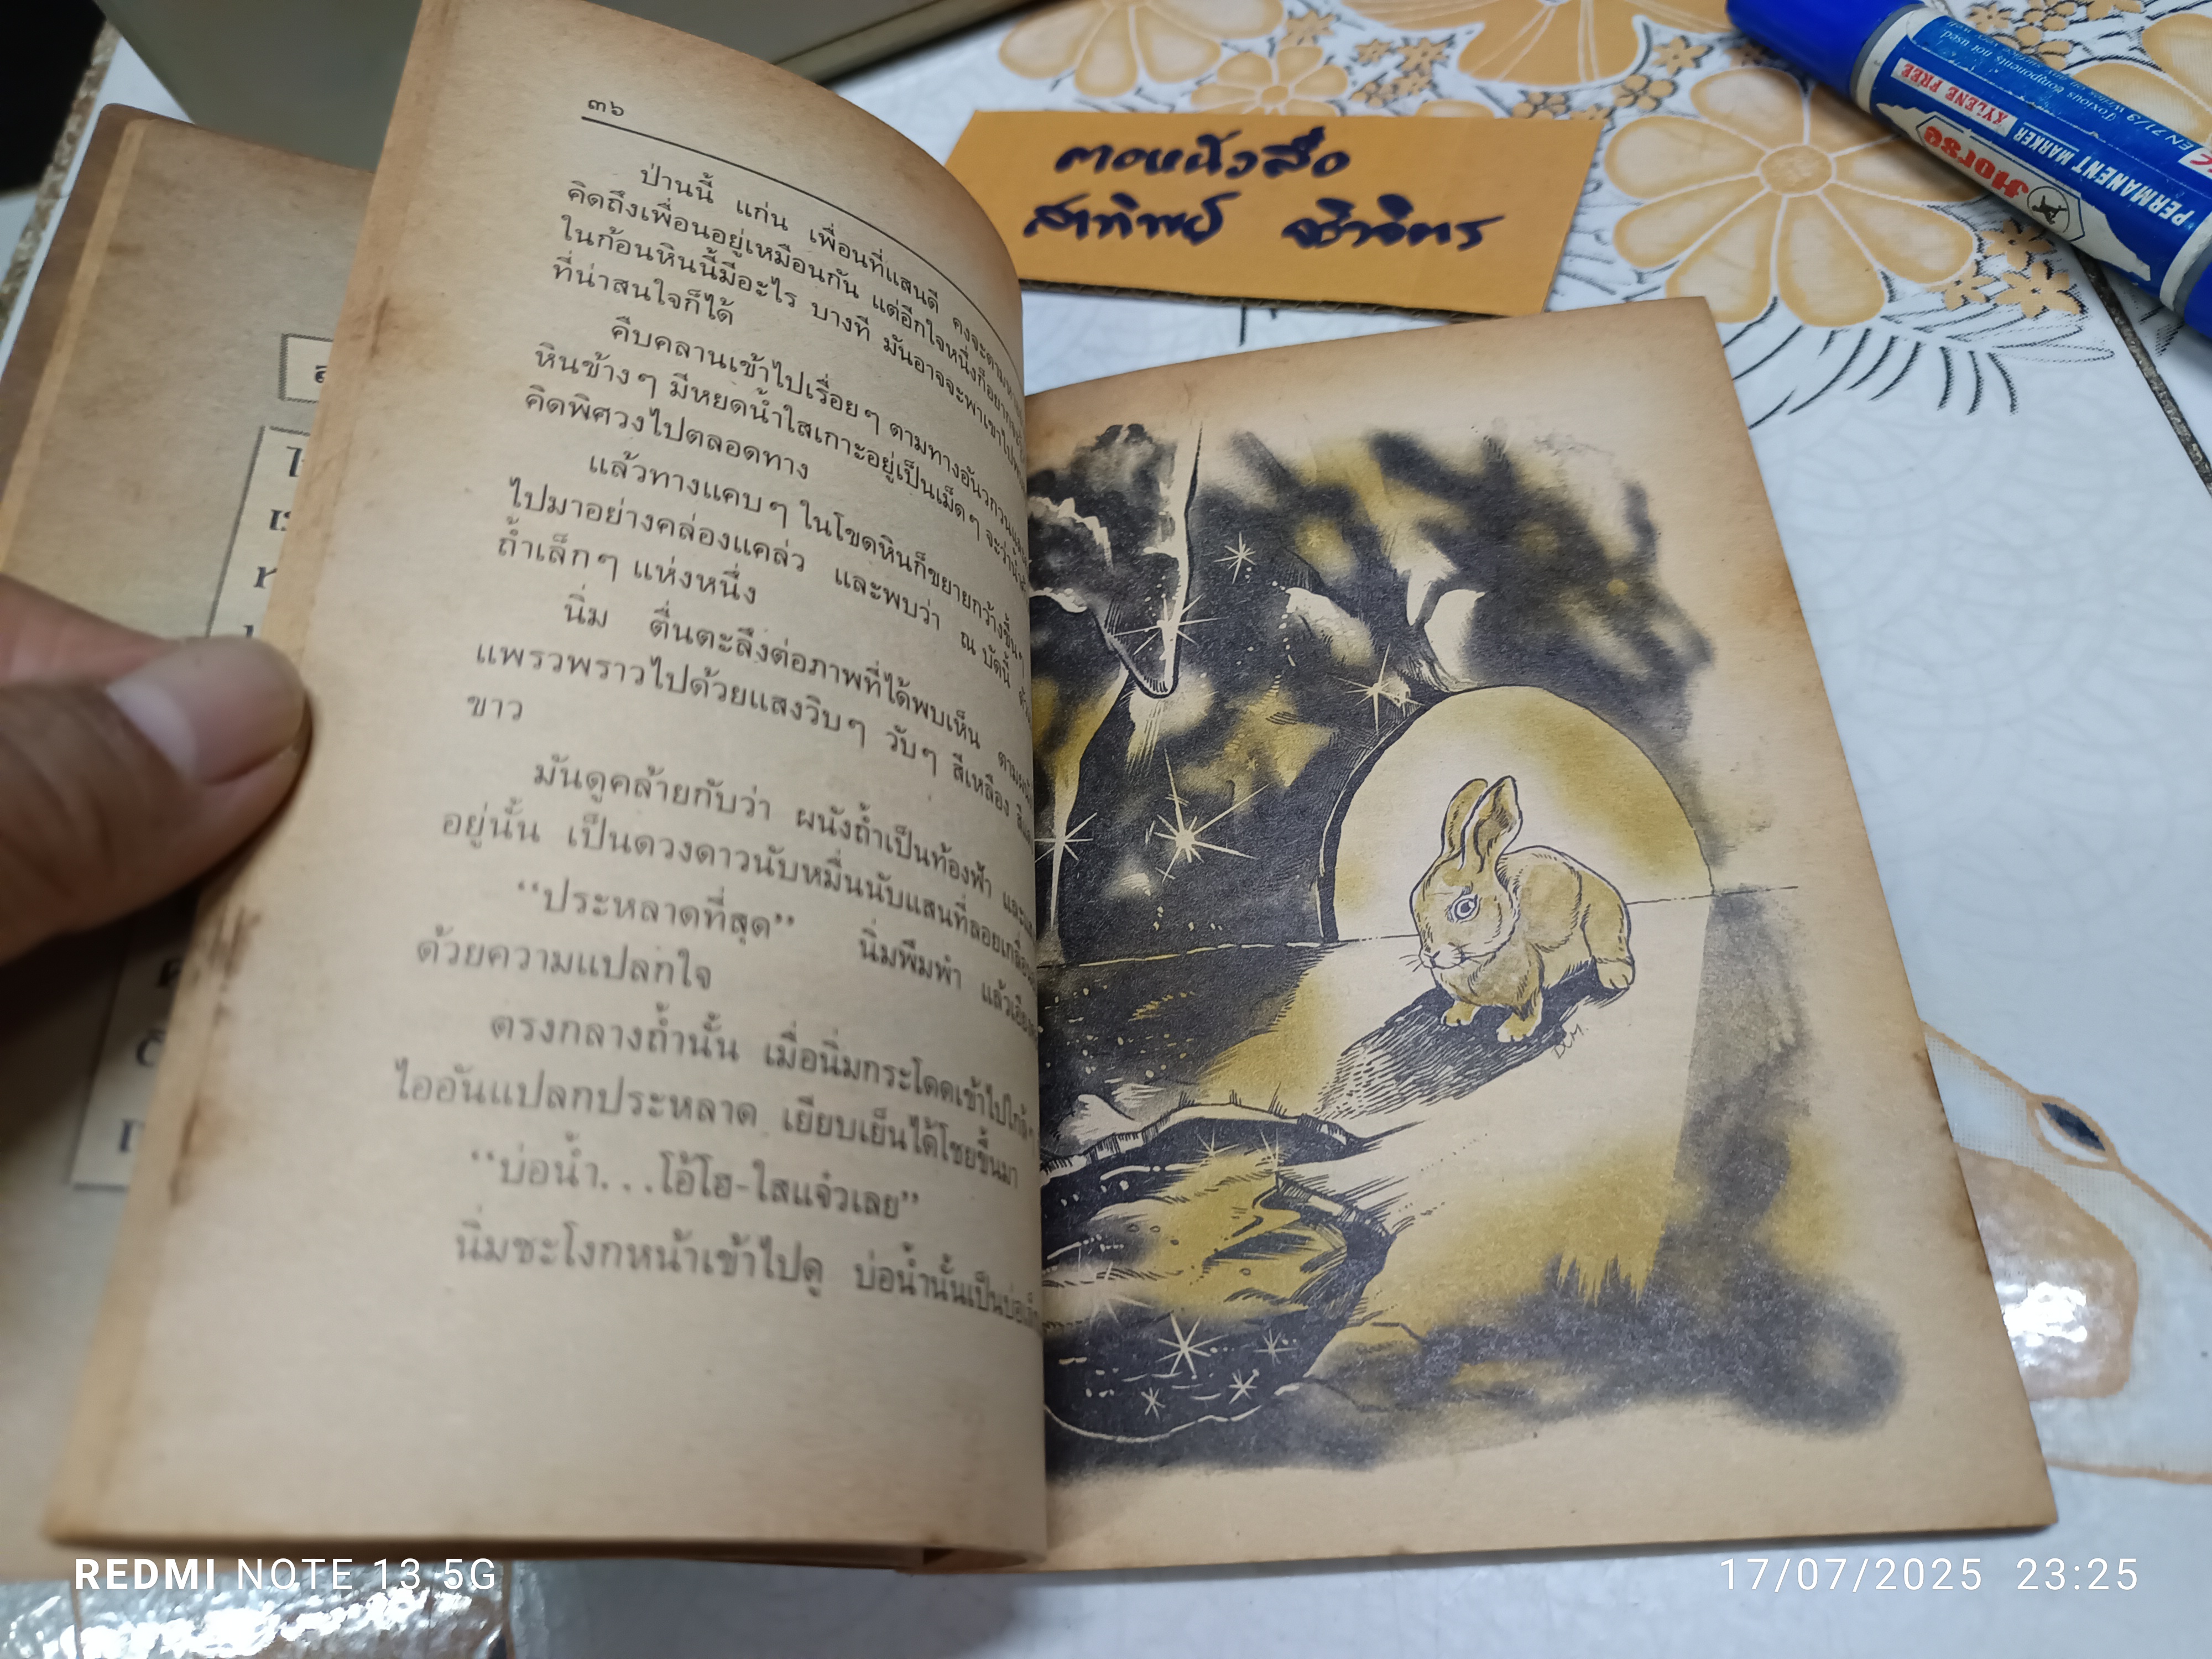 ๓๖
ป่านนี้ แก่น เพื่อนที่แสนดี คงจะตามหา
คิดถึงเพื่อนอยู่เหมือนกัน แต่อีกใจหนึ่งก็อยาก
ในก้อนหินนี้มีอะไร บางที มันอาจจะพาเขาไป
ที่น่าสนใจก็ได้
คืบคลานเข้าไปเรื่อยๆ ตามทางอัน
หินข้างๆ มีหยดน้ำใสเกาะอยู่เป็นเม็ดๆ จะว่า
คิดพิศวงไปตลอดทาง
แล้วทางแคบๆ ในโขดหินก็ขยายกว้างขึ้นๆ
ไปมาอย่างคล่องแคล่ว และพบว่า ณ บัดนี้
ถ้ำเล็กๆ แห่งหนึ่ง
นิ่ม ตื่นตะลึงต่อภาพที่ได้พบเห็น ตามผนัง
แพรวพราวไปด้วยแสงวิบๆ วับๆ สีเหลือง
ขาว
มันดูคล้ายกับว่า ผนังถ้ำเป็นท้องฟ้า และ
อยู่นั้น เป็นดวงดาวนับหมื่นนับแสนที่ลอย
“ประหลาดที่สุด” นิ่มพึมพำ แล้ว
ด้วยความแปลกใจ
ตรงกลางถ้ำนั้น เมื่อนิ่มกระโดดเข้าไปใกล้ๆ
ไออันแปลกประหลาด เยียบเย็นได้โชยขึ้นมา
“บ่อน้ำ...โอ้โฮ-ใสแจ๋วเลย”
นิ่มชะโงกหน้าเข้าไปดู บ่อน้ำนั้นเป็นบ่อ
ตอหนังสือ
สาทิพย์
Horse
PERMANENT MARKER
XYLENE FREE
EN 71/3
REDMI NOTE 13 5G
17/07/2025 23:25